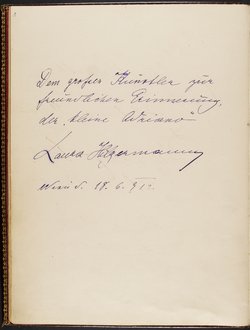 Dem großen Künstler zur
freundlichen Erinnerung,
der „kleine Adriano“
Laura Hilgermann
Wien d. 18. 6.